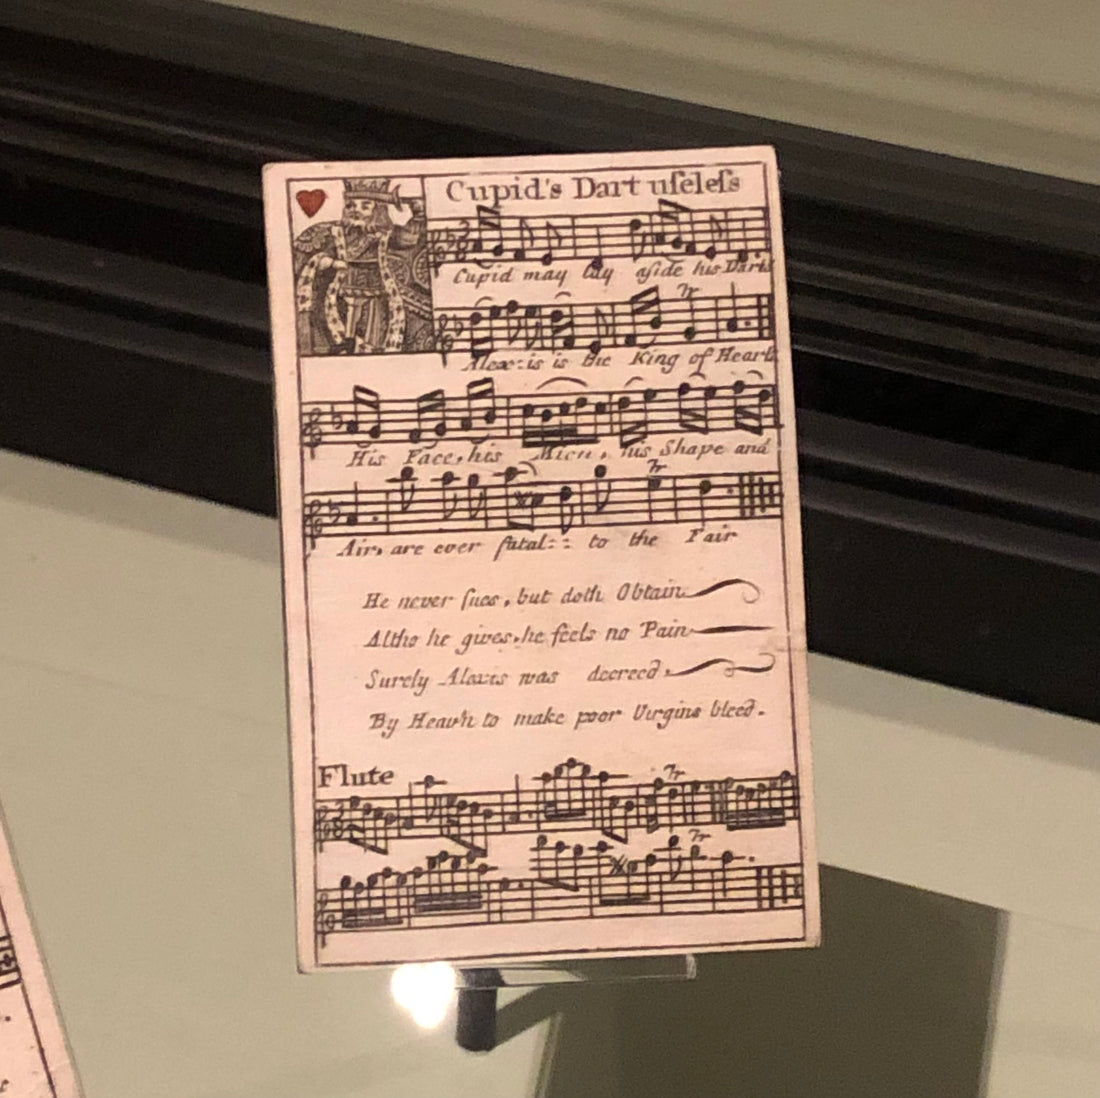 Cupid's Dart uſeleſs
Cupid may lay aſide his Darts
Alexis is the King of Hearts
His Face, his Mien, his Shape and
Air, are ever fatal:: to the Fair
He never ſues, but doth Obtain
Altho he gives, he feels no Pain
Surely Alexis was decreed,
By Heav'n to make poor Virgins bleed.
Flute